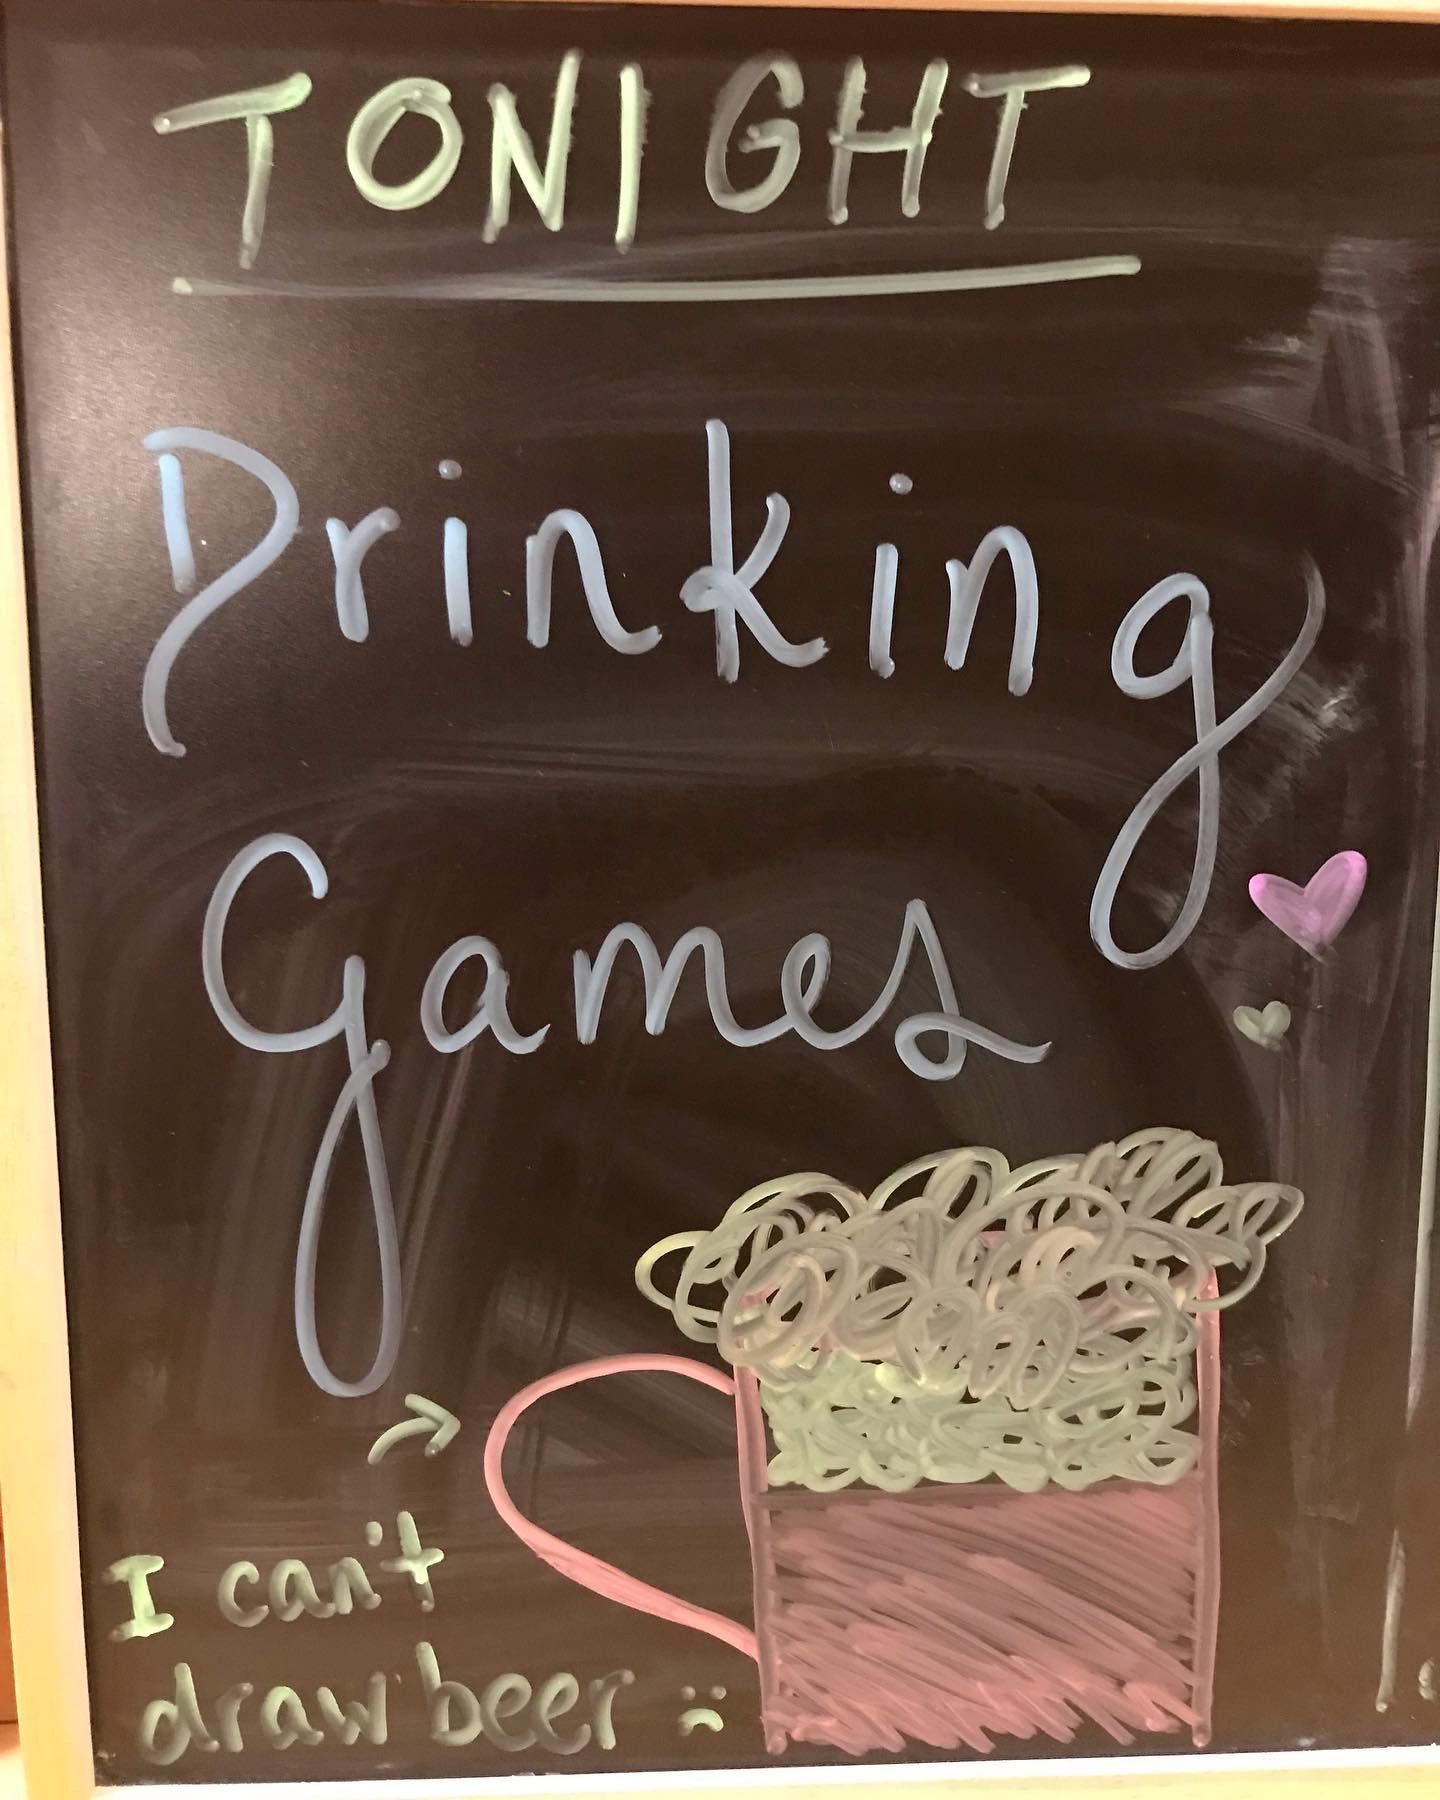 TONIGHT
Drinking
Games
I can't
draw beer :(